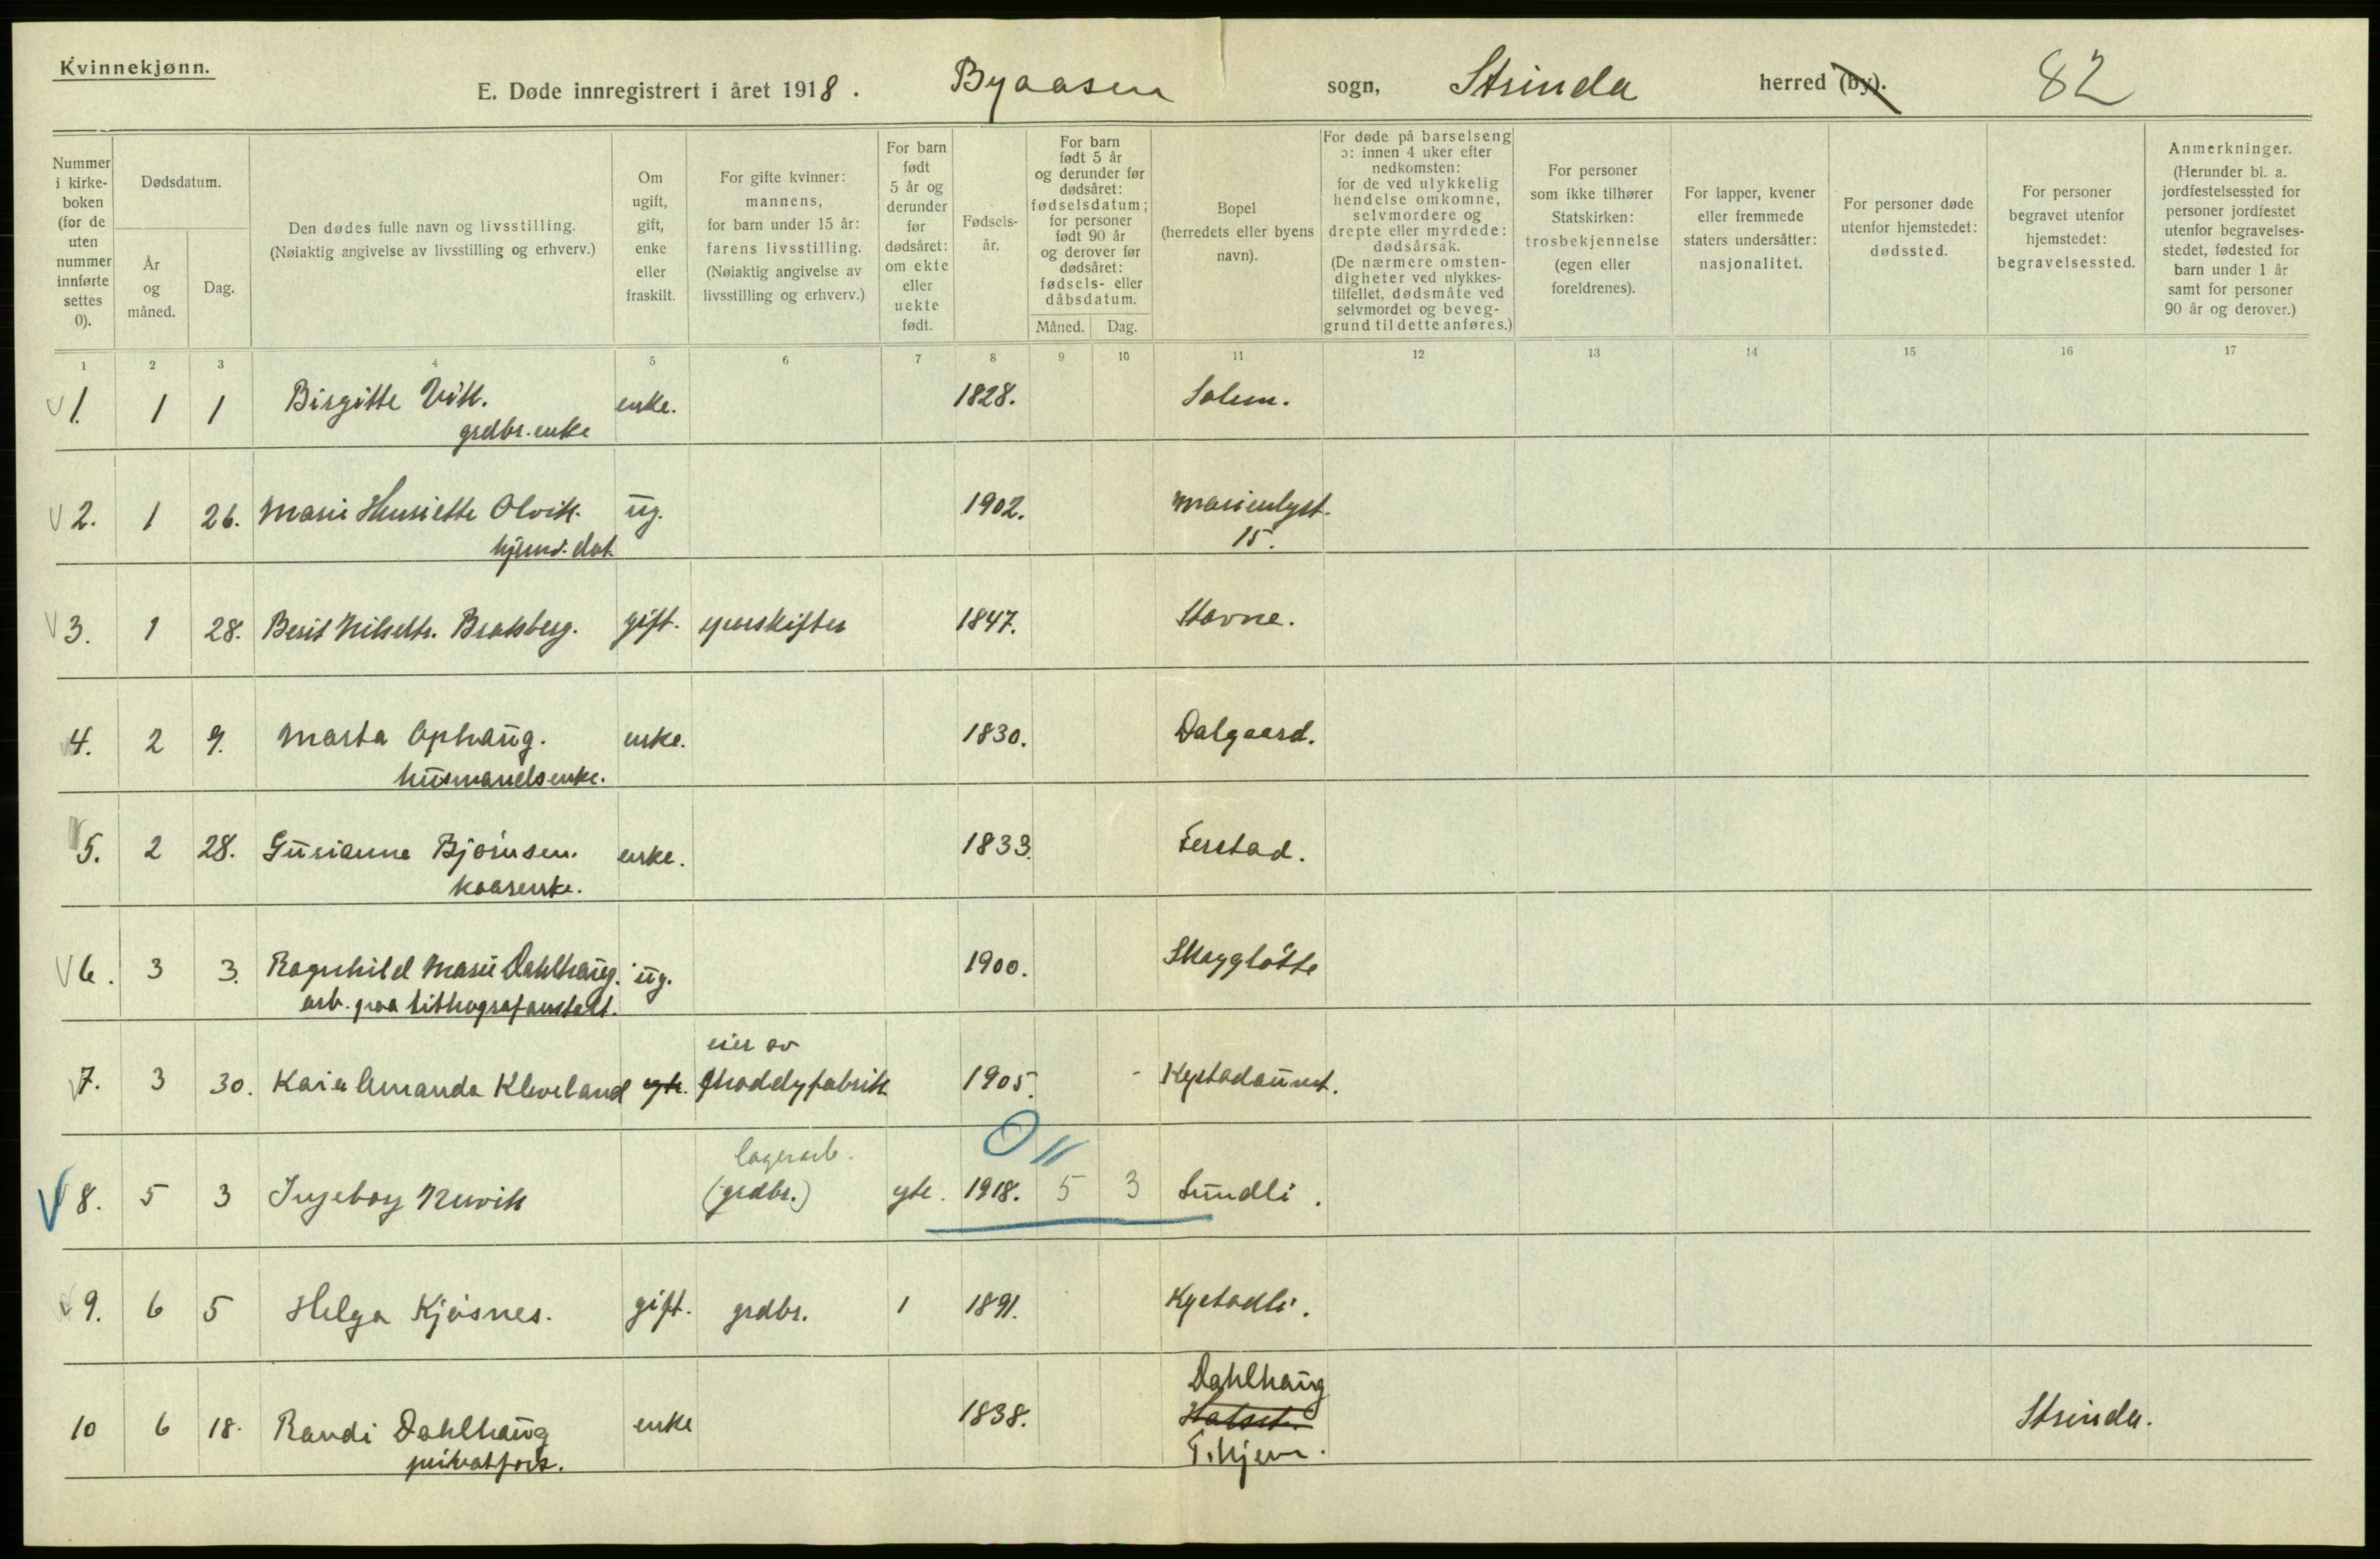 Kvinnekjønn.
E. Døde innregistrert i året 1918. Byaasen sogn, Strinda herred (by). 82
Nummer i kirke-
boken
(for de
uten
nummer
innførte
settes
0).
Dødsdatum.
År
og
måned.
Dag.
Den dødes fulle navn og livsstilling.
(Nøiaktig angivelse av livsstilling og erhverv.)
Om
ugift,
gift,
enke
eller
fraskilt.
For gifte kvinner:
mannens,
for barn under 15 år:
farens livsstilling.
(Nøiaktig angivelse av
livsstilling og erhverv.)
For barn
født
5 år og
derunder
før
dødsåret:
om ekte
eller
uekte
født.
Fødsels-
år.
For barn
født 5 år
og derunder før
dødsåret:
fødselsdatum;
for personer
født 90 år
og derover før
dødsåret:
fødsels- eller
dåbsdatum.
Måned. Dag.
Bopel
(herredets eller byens
navn).
For døde på barselseng
ɔ: innen 4 uker efter
nedkomsten:
for de ved ulykkelig
hendelse omkomne,
selvmordere og
drepte eller myrdede:
dødsårsak.
(De nærmere omsten-
digheter ved ulykkes-
tilfellet, dødsmåte ved
selvmordet og beveg-
grund til dette anføres.)
For personer
som ikke tilhører
Statskirken:
trosbekjennelse
(egen eller
foreldrenes).
For lapper, kvener
eller fremmede
staters undersåtter:
nasjonalitet.
For personer døde
utenfor hjemstedet:
dødssted.
For personer
begravet utenfor
hjemstedet:
begravelsessted.
Anmerkninger.
(Herunder bl. a.
jordfestelsessted for
personer jordfestet
utenfor begravelses-
stedet, fødested for
barn under 1 år
samt for personer
90 år og derover.)
1 2 3 4 5 6 7 8 9 10 11 12 13 14 15 16 17
1. 1 1 Birgitte Vik. enke. 1828. Solem.
grdbr. enke
2. 1 26. Marie Henriette Olvik. ug. 1902. Marienlyst.
hjemv. dat. 15.
3. 1 28. Berit Nilsdtr. Bratsberg. gift. sporskifter 1847. Stavne.
4. 2 9. Marta Ophaug. enke. 1830. Dalgaard.
husmandsenke.
5. 2 28. Gurianna Bjørnsen. enke. 1833. Ferstad.
kaarenke.
6. 3 3. Ragnhild Marie Dahlhaug. ug. 1900. Skaggløtte
arb. paa lithografanstalt.
eier av
7. 3 30. Kaia Amanda Kleveland Shoddyfabrik 1905. - Kystadaunet.
lagerarb.
8. 5 3 Ingeborg Rervik (grdbr.) egte. 1918. 5 3 Sundli.
9. 6 5 Helga Kjøsnes. gift. grdbr. 1 1891. Kystadli.
Dahlhaug
10 6 18. Randi Dahlhaug enke 1838. Strinda.
privatfors. T.hjem.